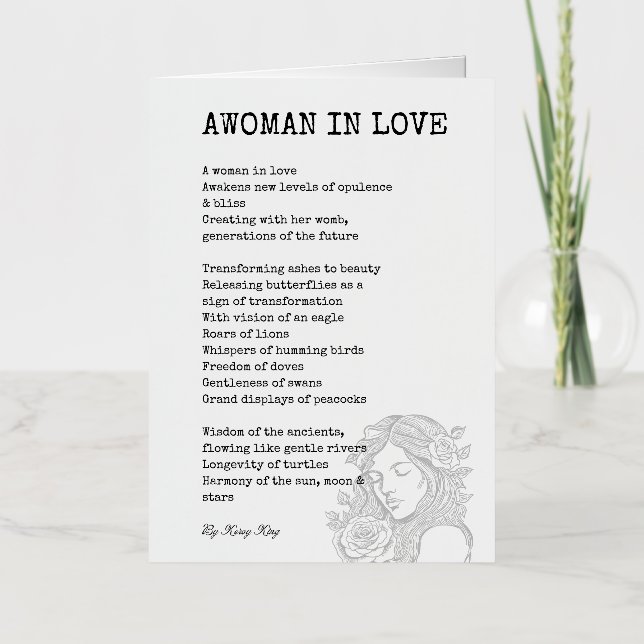 AWOMAN IN LOVE
A woman in love
Awakens new levels of opulence
& bliss
Creating with her womb,
generations of the future
Transforming ashes to beauty
Releasing butterflies as a
sign of transformation
With vision of an eagle
Roars of lions
Whispers of humming birds
Freedom of doves
Gentleness of swans
Grand displays of peacocks
Wisdom of the ancients,
flowing like gentle rivers
Longevity of turtles
Harmony of the sun, moon &
stars
By King